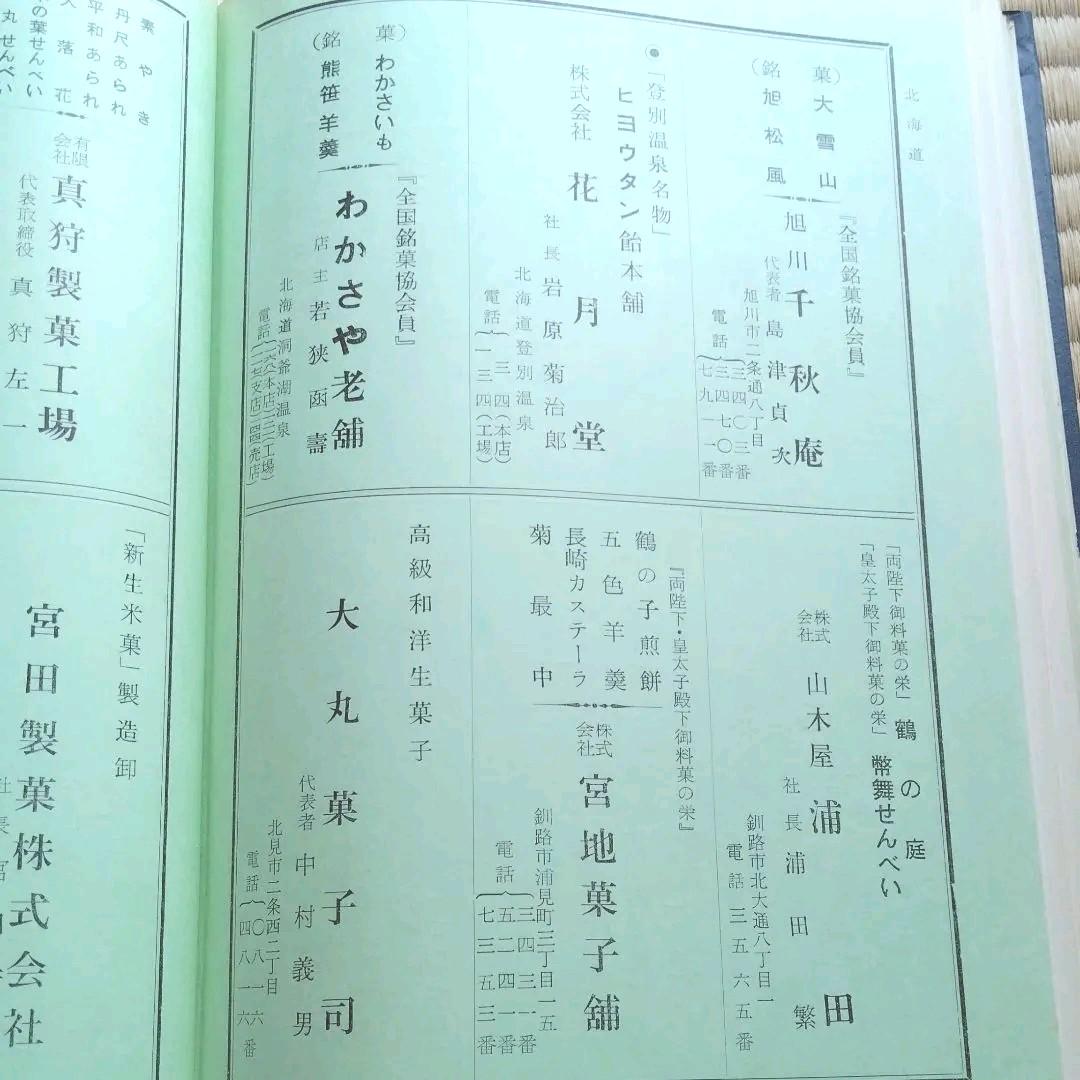 北海道
（銘菓）
大雪山
旭松風
『全国銘菓協会員』
旭川千秋庵
代表者 島津貞次
旭川市二条通八丁目
電話
三四〇三番
四七〇番
七九一一番
●「登別温泉名物」
ヒヨウタン飴本舗
株式会社 花月堂
社長 岩原菊治郎
北海道登別温泉
電話
三四(本店)
一三四(工場)
（銘菓）
わかさいも
熊笹羊羹
『全国銘菓協会員』
わかさや老舗
店主 若狭函壽
北海道洞爺湖温泉
電話
「両陛下御料菓の栄」
「皇太子殿下御料菓の栄」
鶴の庭
幣舞せんべい
株式会社 山木屋浦田
社長 浦田繁
釧路市北大通八丁目一
電話 三五六五番
『両陛下・皇太子殿下御料菓の栄』
鶴の子煎餅
五色羊羹
長崎カステーラ
菊最中
株式会社 宮地菓子舗
釧路市浦見町三丁目一五
電話
三四三一番
五二四一番
七三五三番
高級和洋生菓子
大丸菓子司
代表者 中村義男
北見市二条西二丁目
電話
〇八一六
四八一六番
素やき
丹尺あられ
平和あられ
落花
の葉せんべい
丸せんべい
有限会社 真狩製菓工場
代表取締役 真狩左一
「新生米菓」製造卸
宮田製菓株式会社
社長 宮